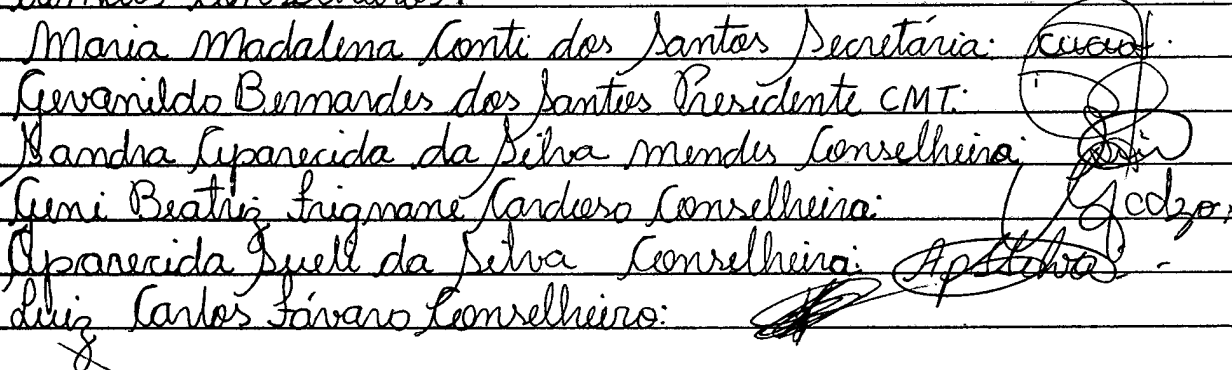 Maria Madalena Conti dos Santos Secretária:
Gevanildo Bernardes dos Santos Presidente CMT:
Sandra Aparecida da Silva Mendes Conselheira:
Geni Beatriz Frignane Cardoso Conselheira:
Aparecida Sueli da Silva Conselheira: ApSSilva
Luiz Carlos Fávaro Conselheiro: